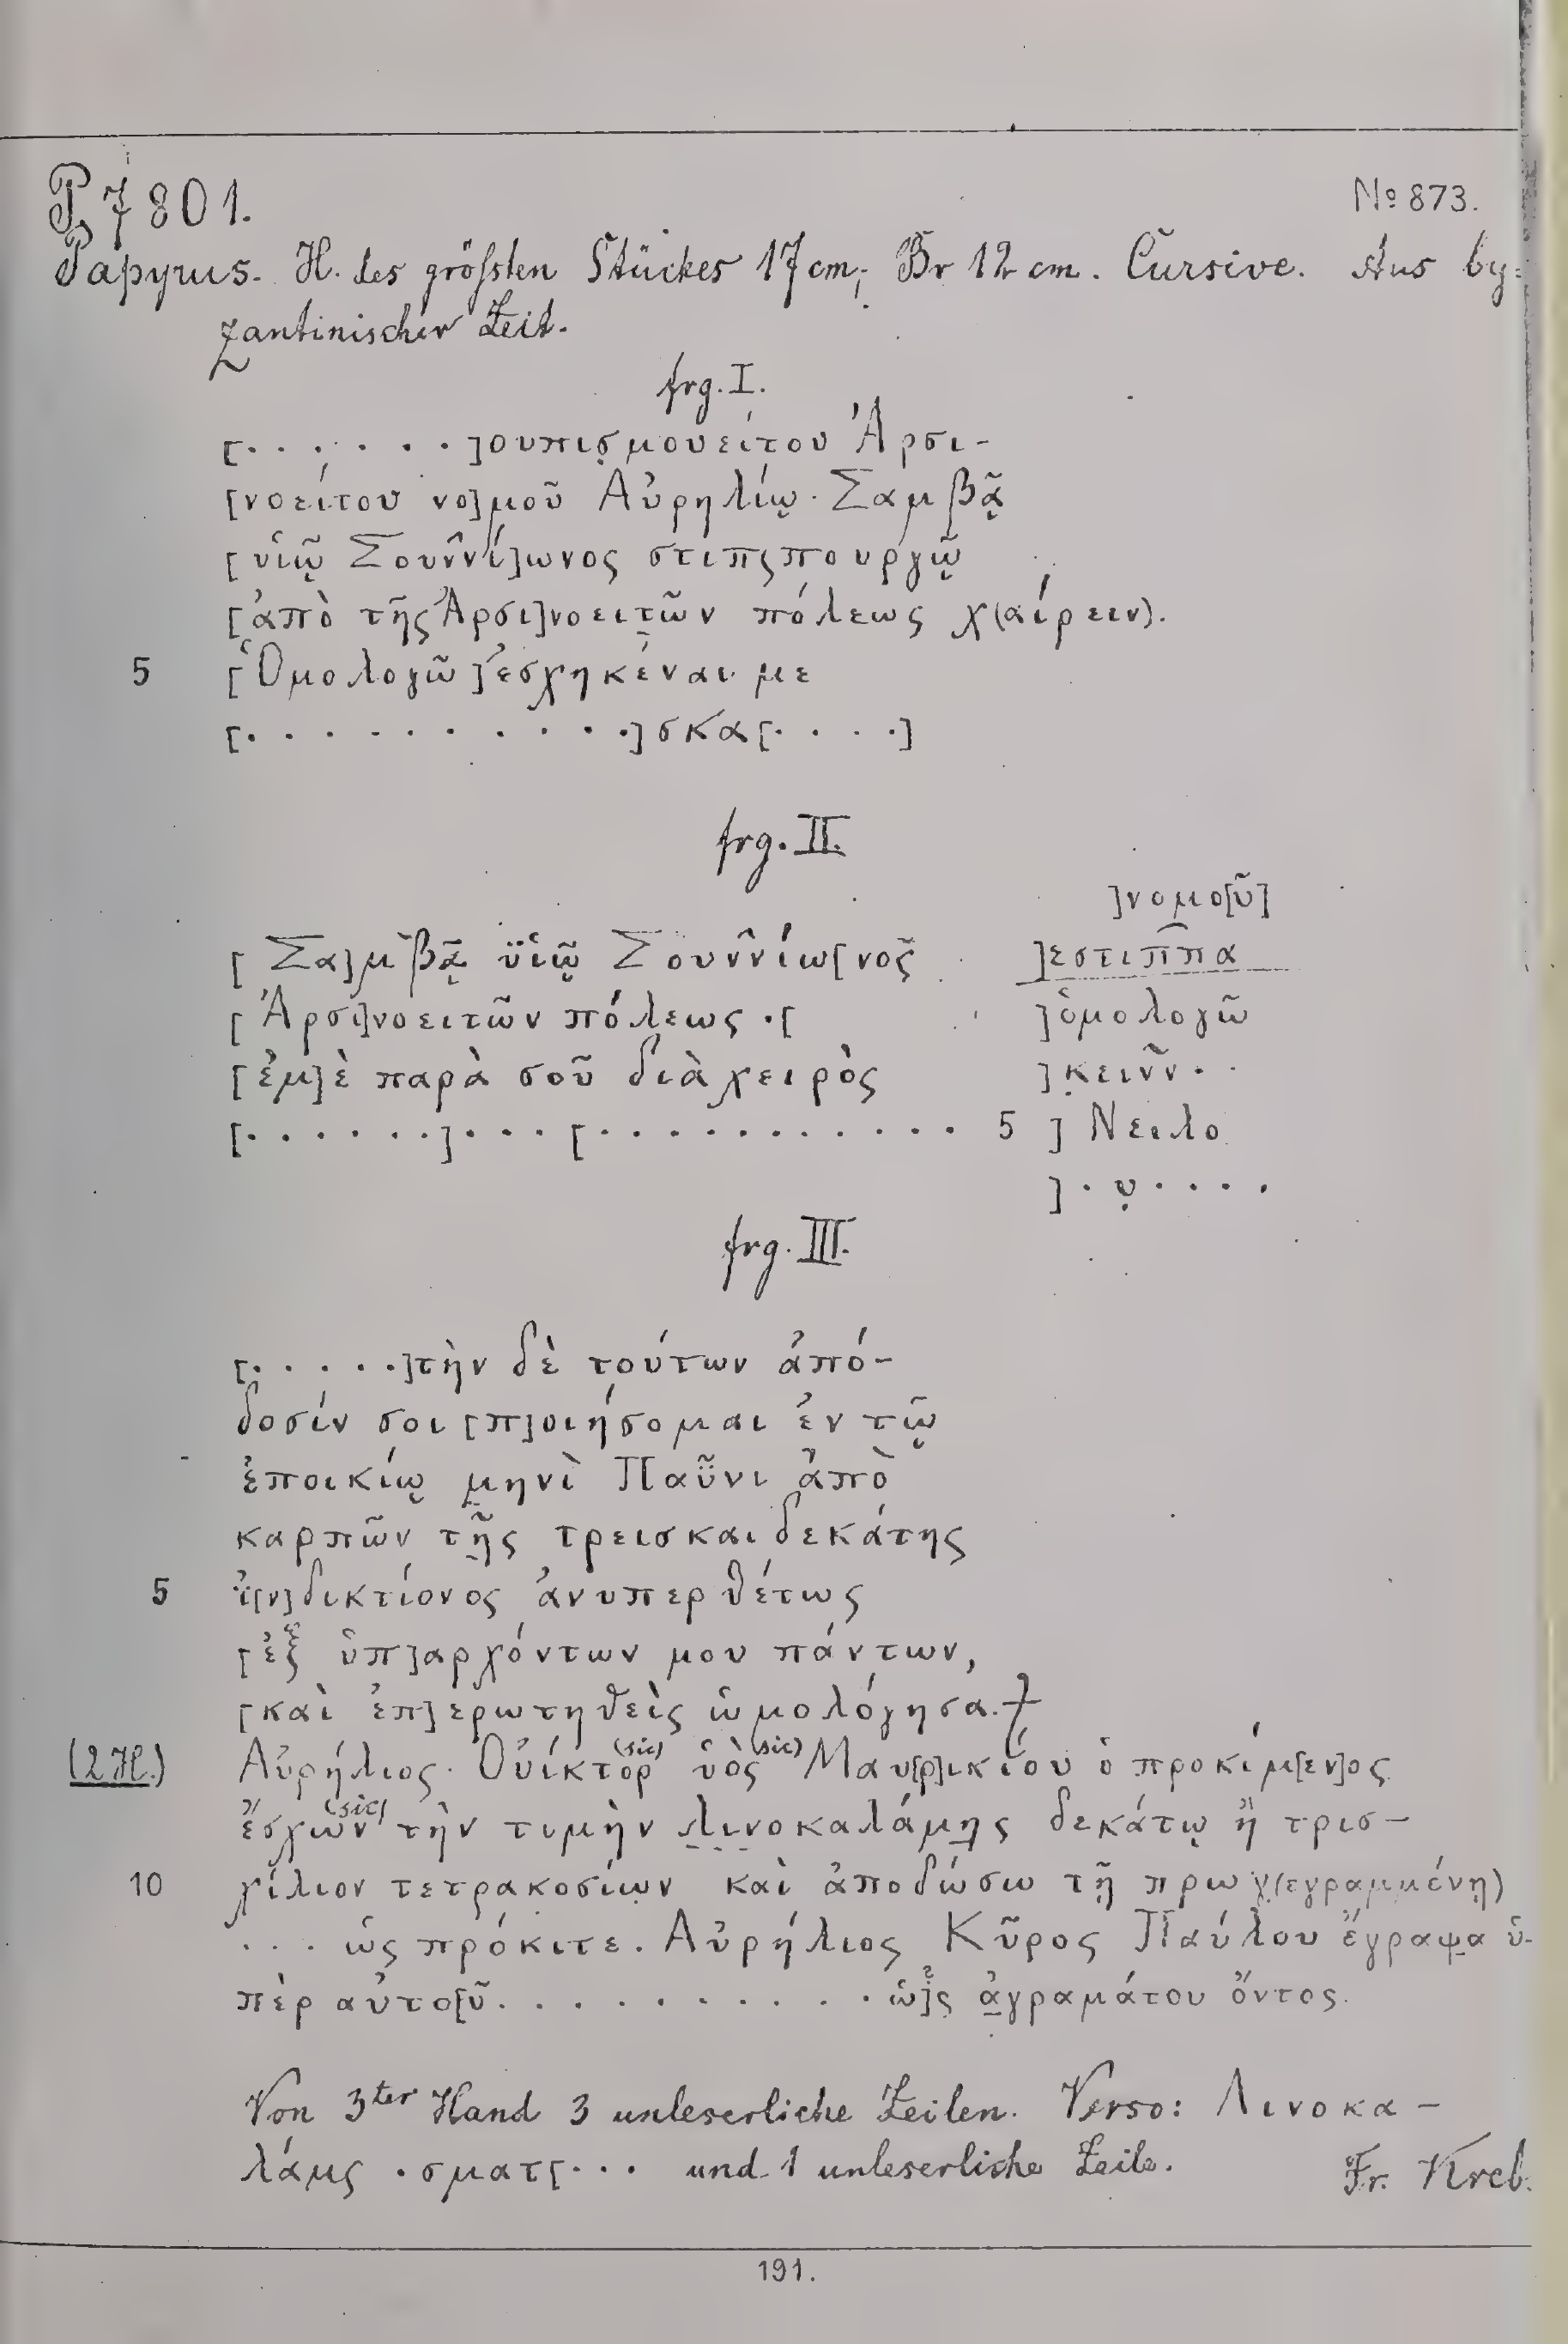 P. 7801.
No 873.
Papyrus. H. des grössten Stückes 17 cm; Br 12 cm. Cursive. Aus by-
zantinischer Zeit.
frg. I.
[· · · · · ·]ουπισ̣μουείτου Ἀρσι-
[νοείτου νο]μοῦ Αὐρηλίῳ Σαμβᾷ
[υἱῷ Σουννί]ωνος στιπςπουργῷ
[ἀπὸ τῆς Ἀρσι]νοειτ̣ῶν πόλεως χ(αίρειν).
5 [Ὁμολογῶ] ἐσχηκέναι με
[· · · · · · · · · ·]σκα[· · · ·]
frg. II.
[Σα]μβᾷ ϋἱῷ Σουννίω[νος
[Ἀρσι]νοειτῶν πόλεως ·[
[ἐμ]ὲ παρὰ σοῦ διὰ χειρὸς
[· · · · · ·]· · ·[· · · · · · · · · ·
]νομο[ῦ]
]εστιππα
]ὁμολογῶ
]κ̣εινν · ·
5 ] Νειλο
] · υ̣ · · · ·
frg. III.
[· · · · ·]τὴν δὲ τούτων ἀπό-
δοσίν σοι [π]οιήσομαι ἐν τῷ
ἐποικίῳ μ̣ηνὶ Παῦνι ἀπὸ
καρπῶν τ̣ῆς τρεισκαιδεκάτης
5 ἰ[ν]δικτίονος ἀνυπερθέτως
[ἐξ ὑπ]αρχόντων μου πάντων,
[καὶ ἐπ]ερωτηθεὶς ὡμολόγησα. ⳨
(2 H.) Αὐρήλιος Οὐίκτορ (sic) ὑὸς (sic) Μαυ[ρ]ικίου ὁ προκίμ[εν]ος
ἔσχων (sic) τὴν τιμὴν λ̣ι̣ν̣οκαλάμη̣ς δεκάτῳ ἢ τρισ-
10 χίλιον τετρακοσίων καὶ ἀποδώσω τῇ πρωγ̣(εγραμμένῃ)
· · · ὡς πρόκιτε. Αὐρήλιος Κῦρος Παύλου ἔγραψα ὑ-
πὲρ αὐτο[ῦ · · · · · · · · · · ὡ]ς ἀ̣γραμάτου ὄντος.
Von 3ter Hand 3 unleserliche Zeilen. Verso: Λινοκα-
λάμς ·σματ[· · · und 1 unleserliche Zeile.
Fr. Kreb.
191.